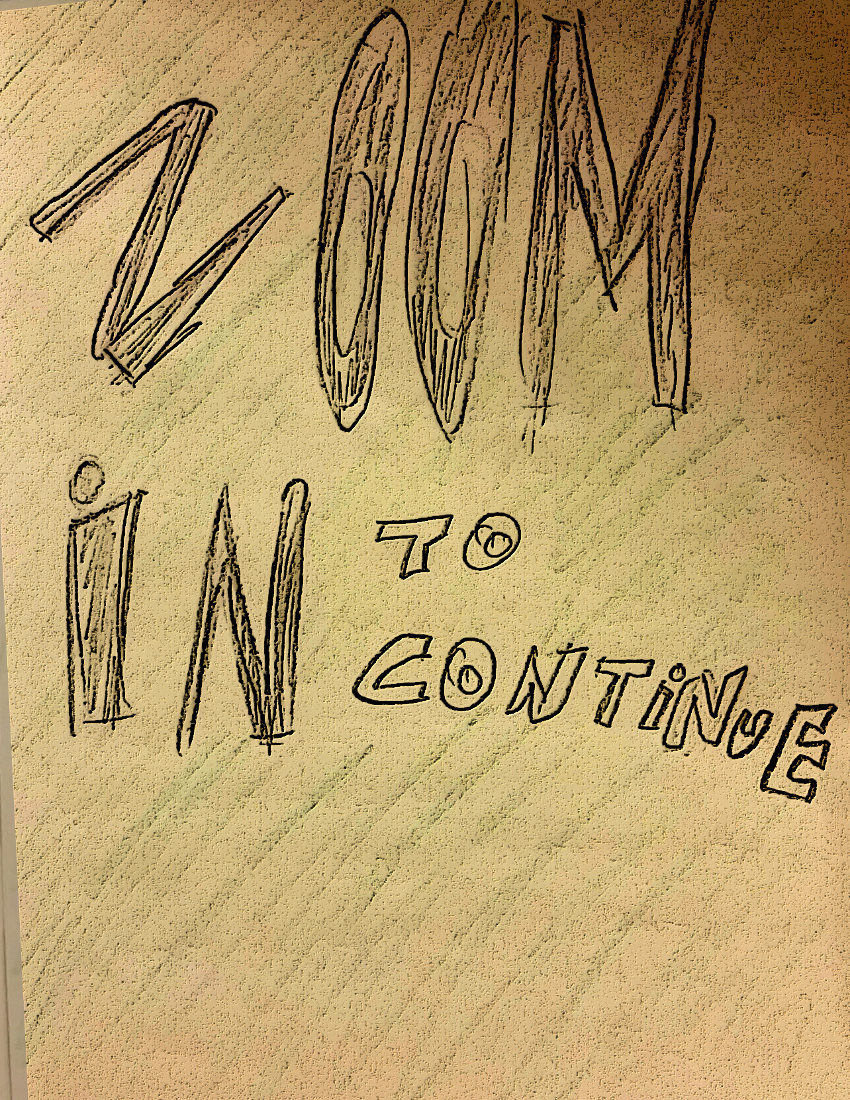 ZOOM
iN TO
CONTiNUE